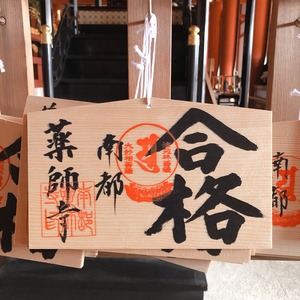 合格
南都
薬師寺
南都